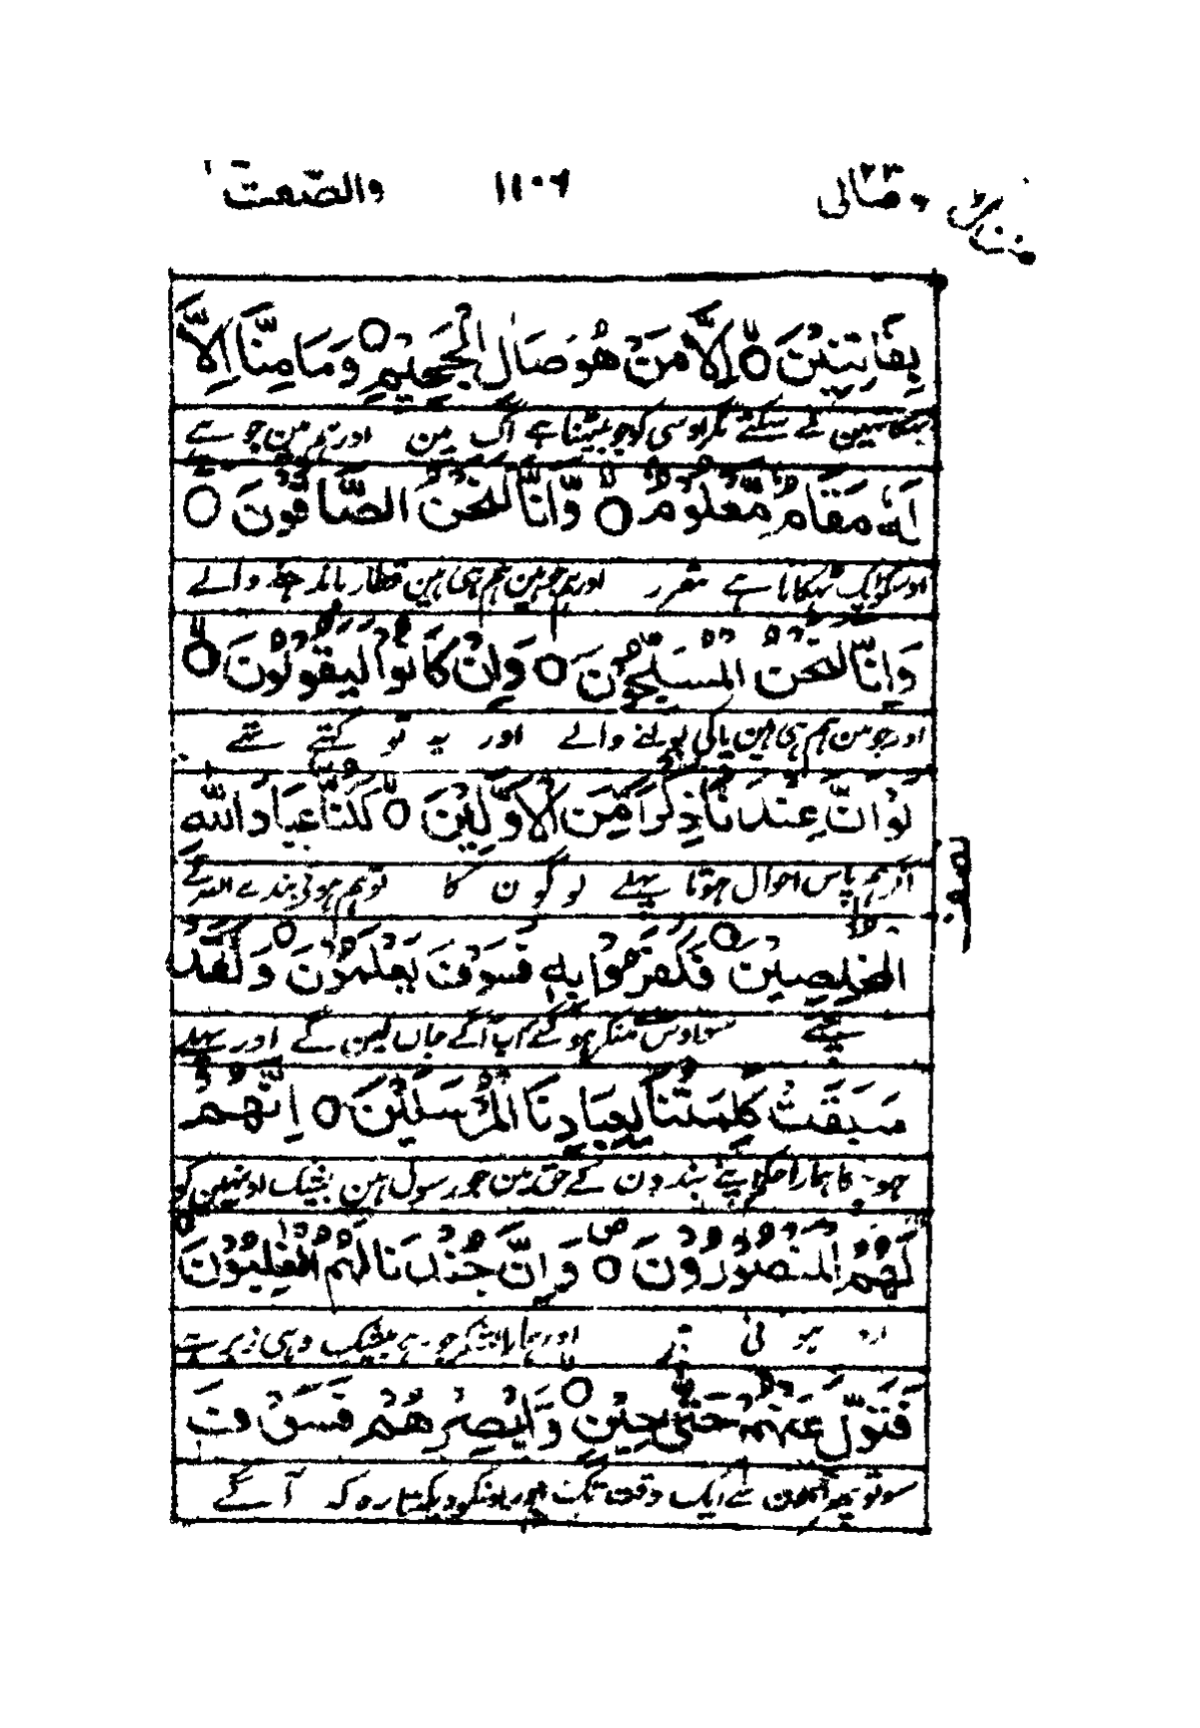 ومالی ٢٣ ١١٠٦ والصّٰفّٰت
بِفَاتِنِيْنَ ۝ اِلَّا مَنْ هُوَ صَالِ الْجَحِيْمِ ۝ وَمَا مِنَّا اِلَّا
بہکا نہین لے سکتے مگر اوسی کو جو بیٹھنا ہے آگ مین اور ہم مین جو ہے
لَهٗ مَقَامٌ مَّعْلُوْمٌ ۝ وَّاِنَّا لَنَحْنُ الصَّآفُّوْنَ ۝
اوسکو ایک ٹھکانا ہے مقرر اور ہم جو ہین ہم ہی ہین قطار باندھنے والے
وَاِنَّا لَنَحْنُ الْمُسَبِّحُوْنَ ۝ وَاِنْ كَانُوْا لَيَقُوْلُوْنَ ۝
اور ہم جو ہین ہم ہی ہین پاکی بولنے والے اور یہ تو کہتے تھے
لَوْ اَنَّ عِنْدَنَا ذِكْرًا مِّنَ الْاَوَّلِيْنَ ۝ لَكُنَّا عِبَادَ اللّٰهِ
اگر ہم پاس احوال ہوتا پہلے لوگون کا تو ہم ہوتے بندے اللہ کے
الْمُخْلَصِيْنَ ۝ فَكَفَرُوْا بِهٖ فَسَوْفَ يَعْلَمُوْنَ ۝ وَلَقَدْ
چنے سو اوس سے منکر ہو گئے اب آگے جان لین گے اور پہلے
سَبَقَتْ كَلِمَتُنَا لِعِبَادِنَا الْمُرْسَلِيْنَ ۝ اِنَّهُمْ
ہو چکا ہمارا حکم اپنے بندون کے حق مین جو رسول ہین بیشک اونہین کو
لَهُمُ الْمَنْصُوْرُوْنَ ۝ وَاِنَّ جُنْدَنَا لَهُمُ الْغٰلِبُوْنَ ۝
اور ہمارا لشکر جو ہے بیشک وہی زبر ہے
فَتَوَلَّ عَنْهُمْ حَتّٰى حِيْنٍ ۝ وَّاَبْصِرْهُمْ فَسَوْفَ
سو تو پھر آ اون سے ایک وقت تک اور اونکو دیکھتا رہ کہ آگے